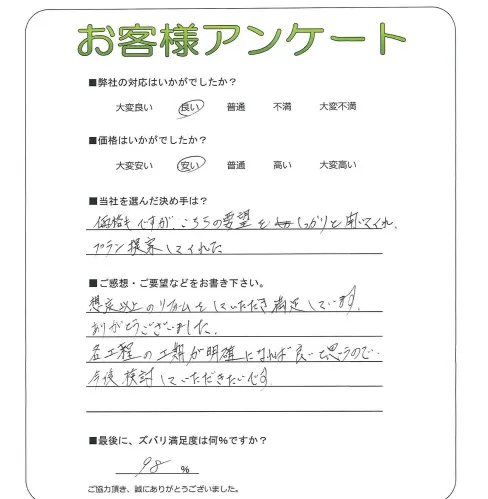 お客様アンケート
■弊社の対応はいかがでしたか？
大変良い 良い 普通 不満 大変不満
■価格はいかがでしたか？
大変安い 安い 普通 高い 大変高い
■当社を選んだ決め手は？
価格もですが、こちらの要望をしっかりと聞いてくれ、
プラン提案してくれた
■ご感想・ご要望などをお書き下さい。
想定以上のリフォームをしていただき満足しています。
ありがとうございました。
各工程の工期が明確になれば良いと思うので、
今後検討していただきたいです。
■最後に、ズバリ満足度は何%ですか？
98 %
ご協力頂き、誠にありがとうございました。